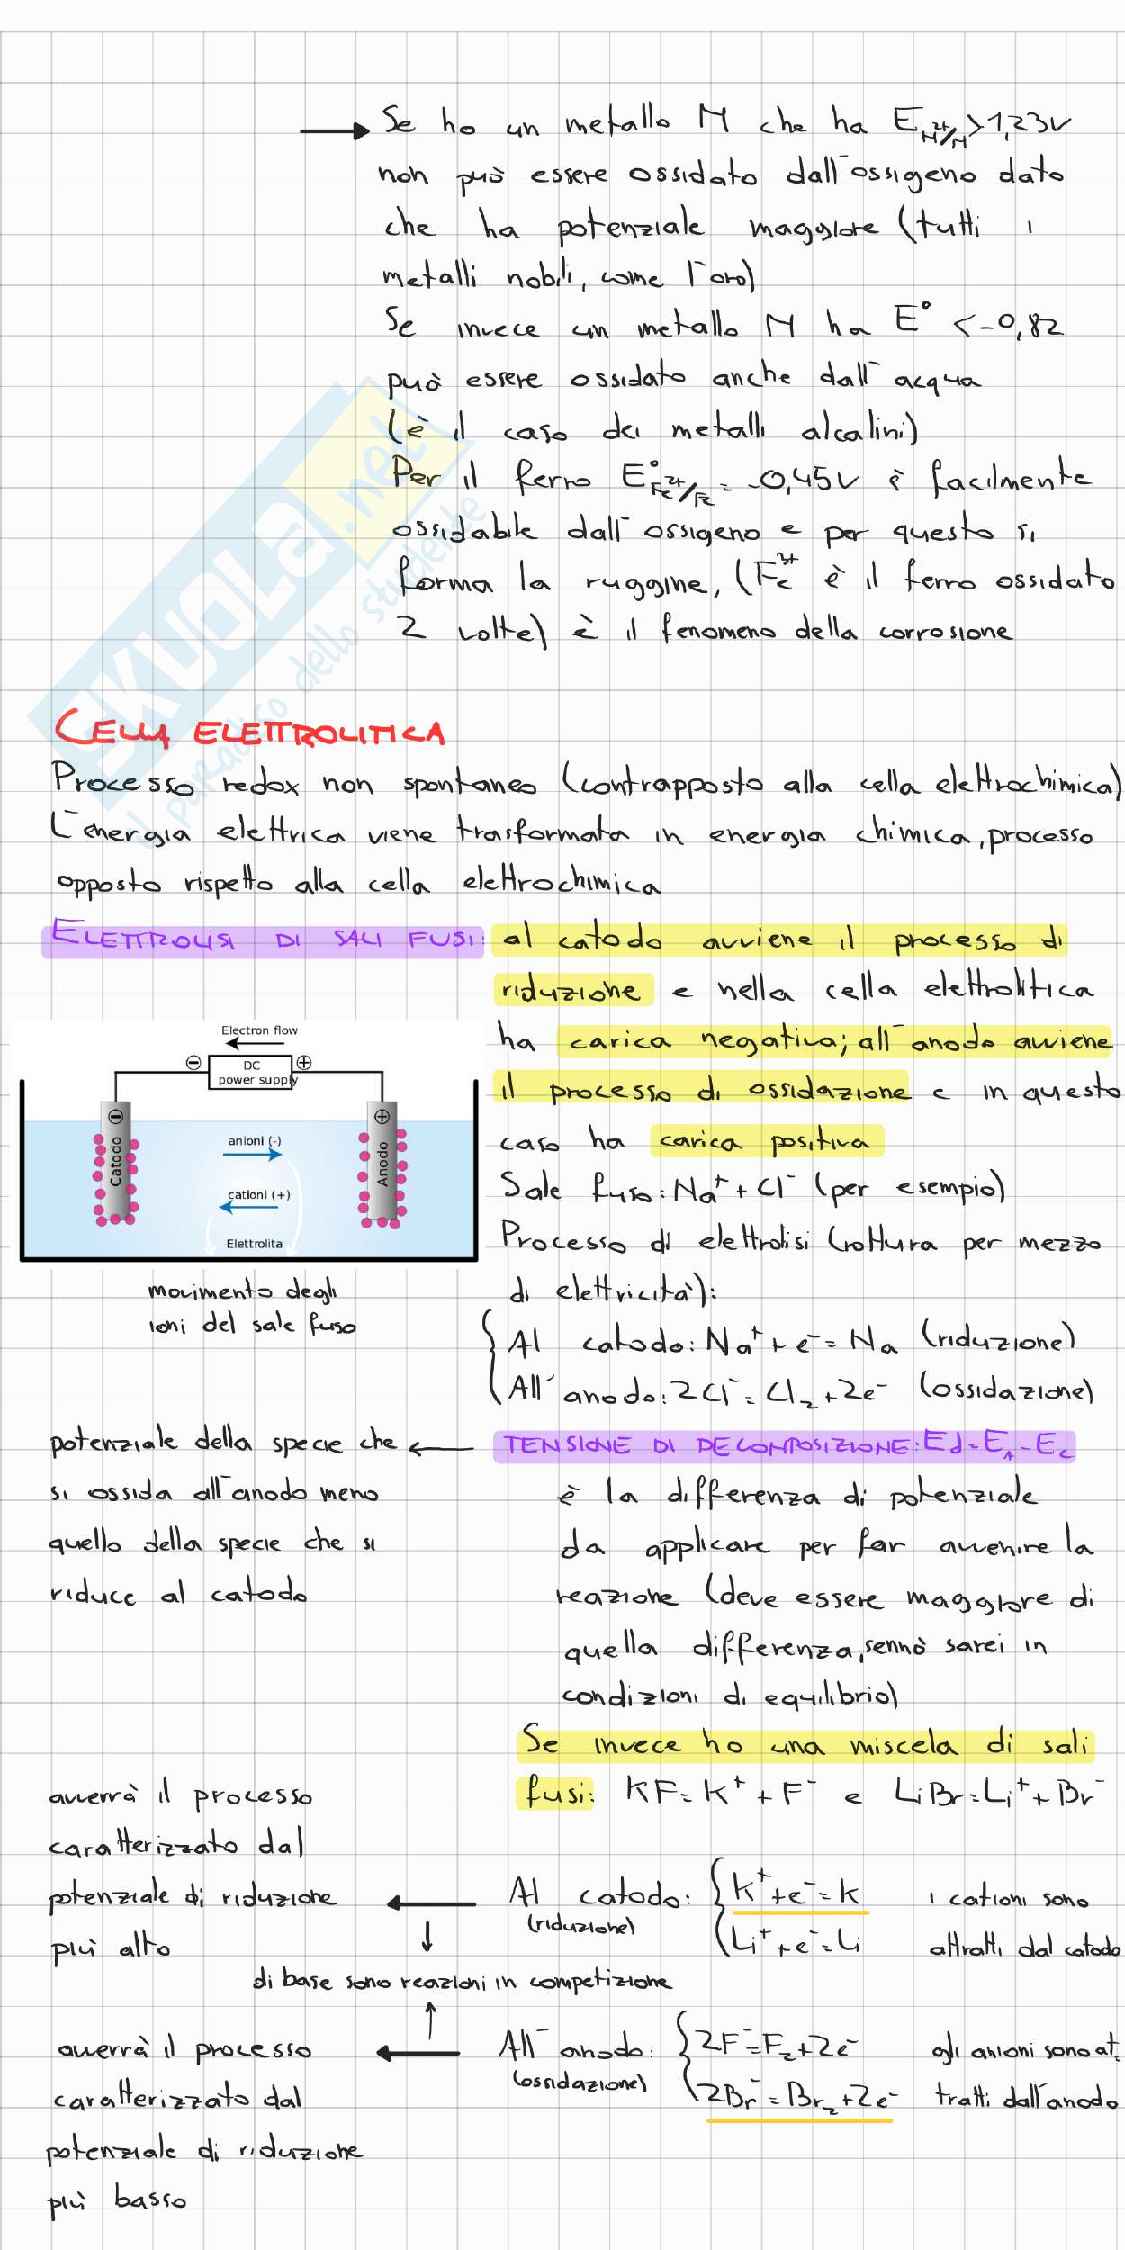 Se ho un metallo M che ha E M²⁺/M > 1,23V
non può essere ossidato dall'ossigeno dato
che ha potenziale maggiore (tutti i
metalli nobili, come l'oro)
Se invece un metallo M ha E° < -0,82
può essere ossidato anche dall'acqua
(è il caso dei metalli alcalini)
Per il ferro E° Fe²⁺/Fe = -0,45V è facilmente
ossidabile dall'ossigeno e per questo si
forma la ruggine, (Fe³⁺ è il ferro ossidato
2 volte) è il fenomeno della corrosione
SKUOLA.net
il paradiso dello studente
CELLA ELETTROLITICA
Processo redox non spontaneo (contrapposto alla cella elettrochimica)
L'energia elettrica viene trasformata in energia chimica, processo
opposto rispetto alla cella elettrochimica
ELETTROLISI DI SALI FUSI: al catodo avviene il processo di
riduzione e nella cella elettrolitica
ha carica negativa; all'anodo avviene
il processo di ossidazione e in questo
caso ha carica positiva
Electron flow
⊖ DC power supply ⊕
⊖ Catodo
⊕ Anodo
anioni (-)
cationi (+)
Elettrolita
movimento degli
ioni del sale fuso
Sale fuso: Na⁺ + Cl⁻ (per esempio)
Processo di elettrolisi (rottura per mezzo
di elettricità):
Al catodo: Na⁺ + e⁻ = Na (riduzione)
All'anodo: 2Cl⁻ = Cl₂ + 2e⁻ (ossidazione)
TENSIONE DI DECOMPOSIZIONE: Ed = E_A - E_C
potenziale della specie che
si ossida all'anodo meno
quello della specie che si
riduce al catodo
è la differenza di potenziale
da applicare per far avvenire la
reazione (deve essere maggiore di
quella differenza, sennò sarei in
condizioni di equilibrio)
Se invece ho una miscela di sali
fusi: KF = K⁺ + F⁻ e LiBr = Li⁺ + Br⁻
avverrà il processo
caratterizzato dal
potenziale di riduzione
più alto
Al catodo: K⁺ + e⁻ = K i cationi sono
(riduzione) Li⁺ + e⁻ = Li attratti dal catodo
di base sono reazioni in competizione
avverrà il processo
caratterizzato dal
potenziale di riduzione
più basso
All'anodo: 2F⁻ = F₂ + 2e⁻ gli anioni sono at.
(ossidazione) 2Br⁻ = Br₂ + 2e⁻ tratti dall'anodo